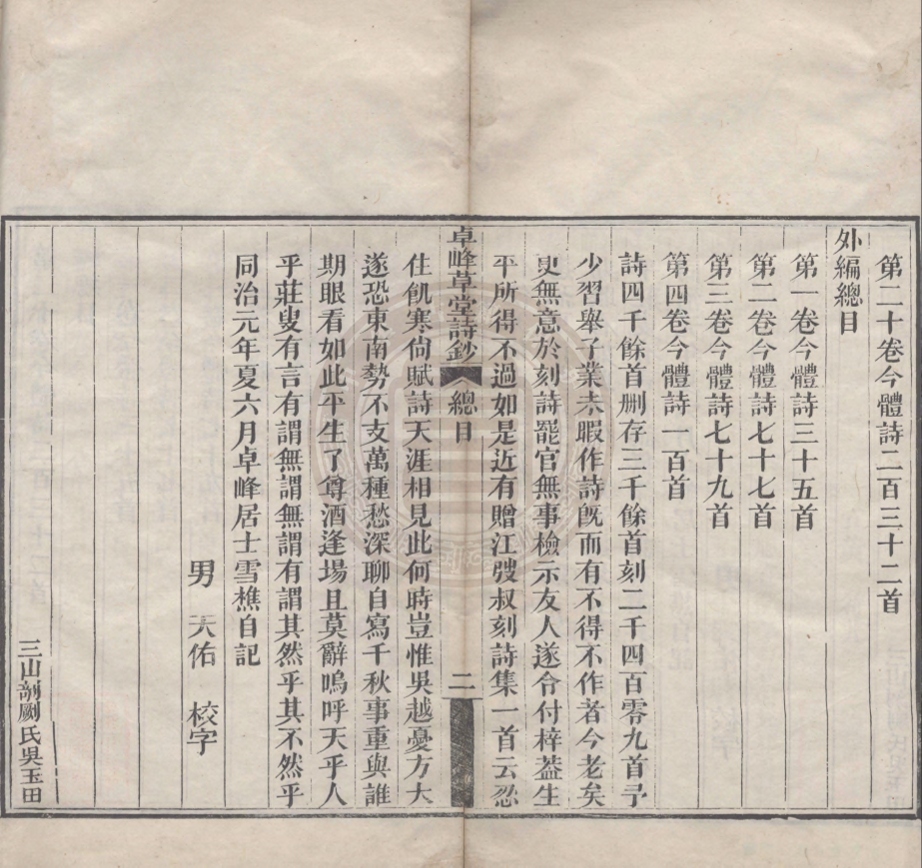 第二十卷今體詩二百三十二首
外編總目
第一卷今體詩三十五首
第二卷今體詩七十七首
第三卷今體詩七十九首
第四卷今體詩一百首
詩四千餘首删存三千餘首刻二千四百零九首予
少習舉子業未暇作詩旣而有不得不作者今老矣
更無意於刻詩罷官無事檢示友人遂令付梓葢生
平所得不過如是近有贈江弢叔刻詩集一首云忍
卓峰草堂詩鈔 總目 二
住飢寒尙賦詩天涯相見此何時豈惟吳越憂方大
遂恐東南勢不支萬種愁深聊自寫千秋事重與誰
期眼看如此平生了尊酒逢場且莫辭嗚呼天乎人
乎莊叟有言有謂無謂無謂有謂其然乎其不然乎
同治元年夏六月卓峰居士雪樵自記
男 天佑 校字
三山剞劂氏吳玉田